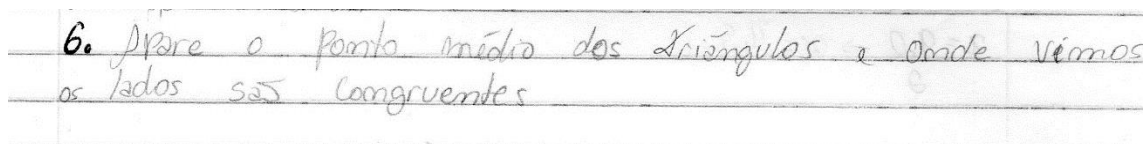 6. Apare o ponto médio dos triângulos e onde vimos
os lados são congruentes